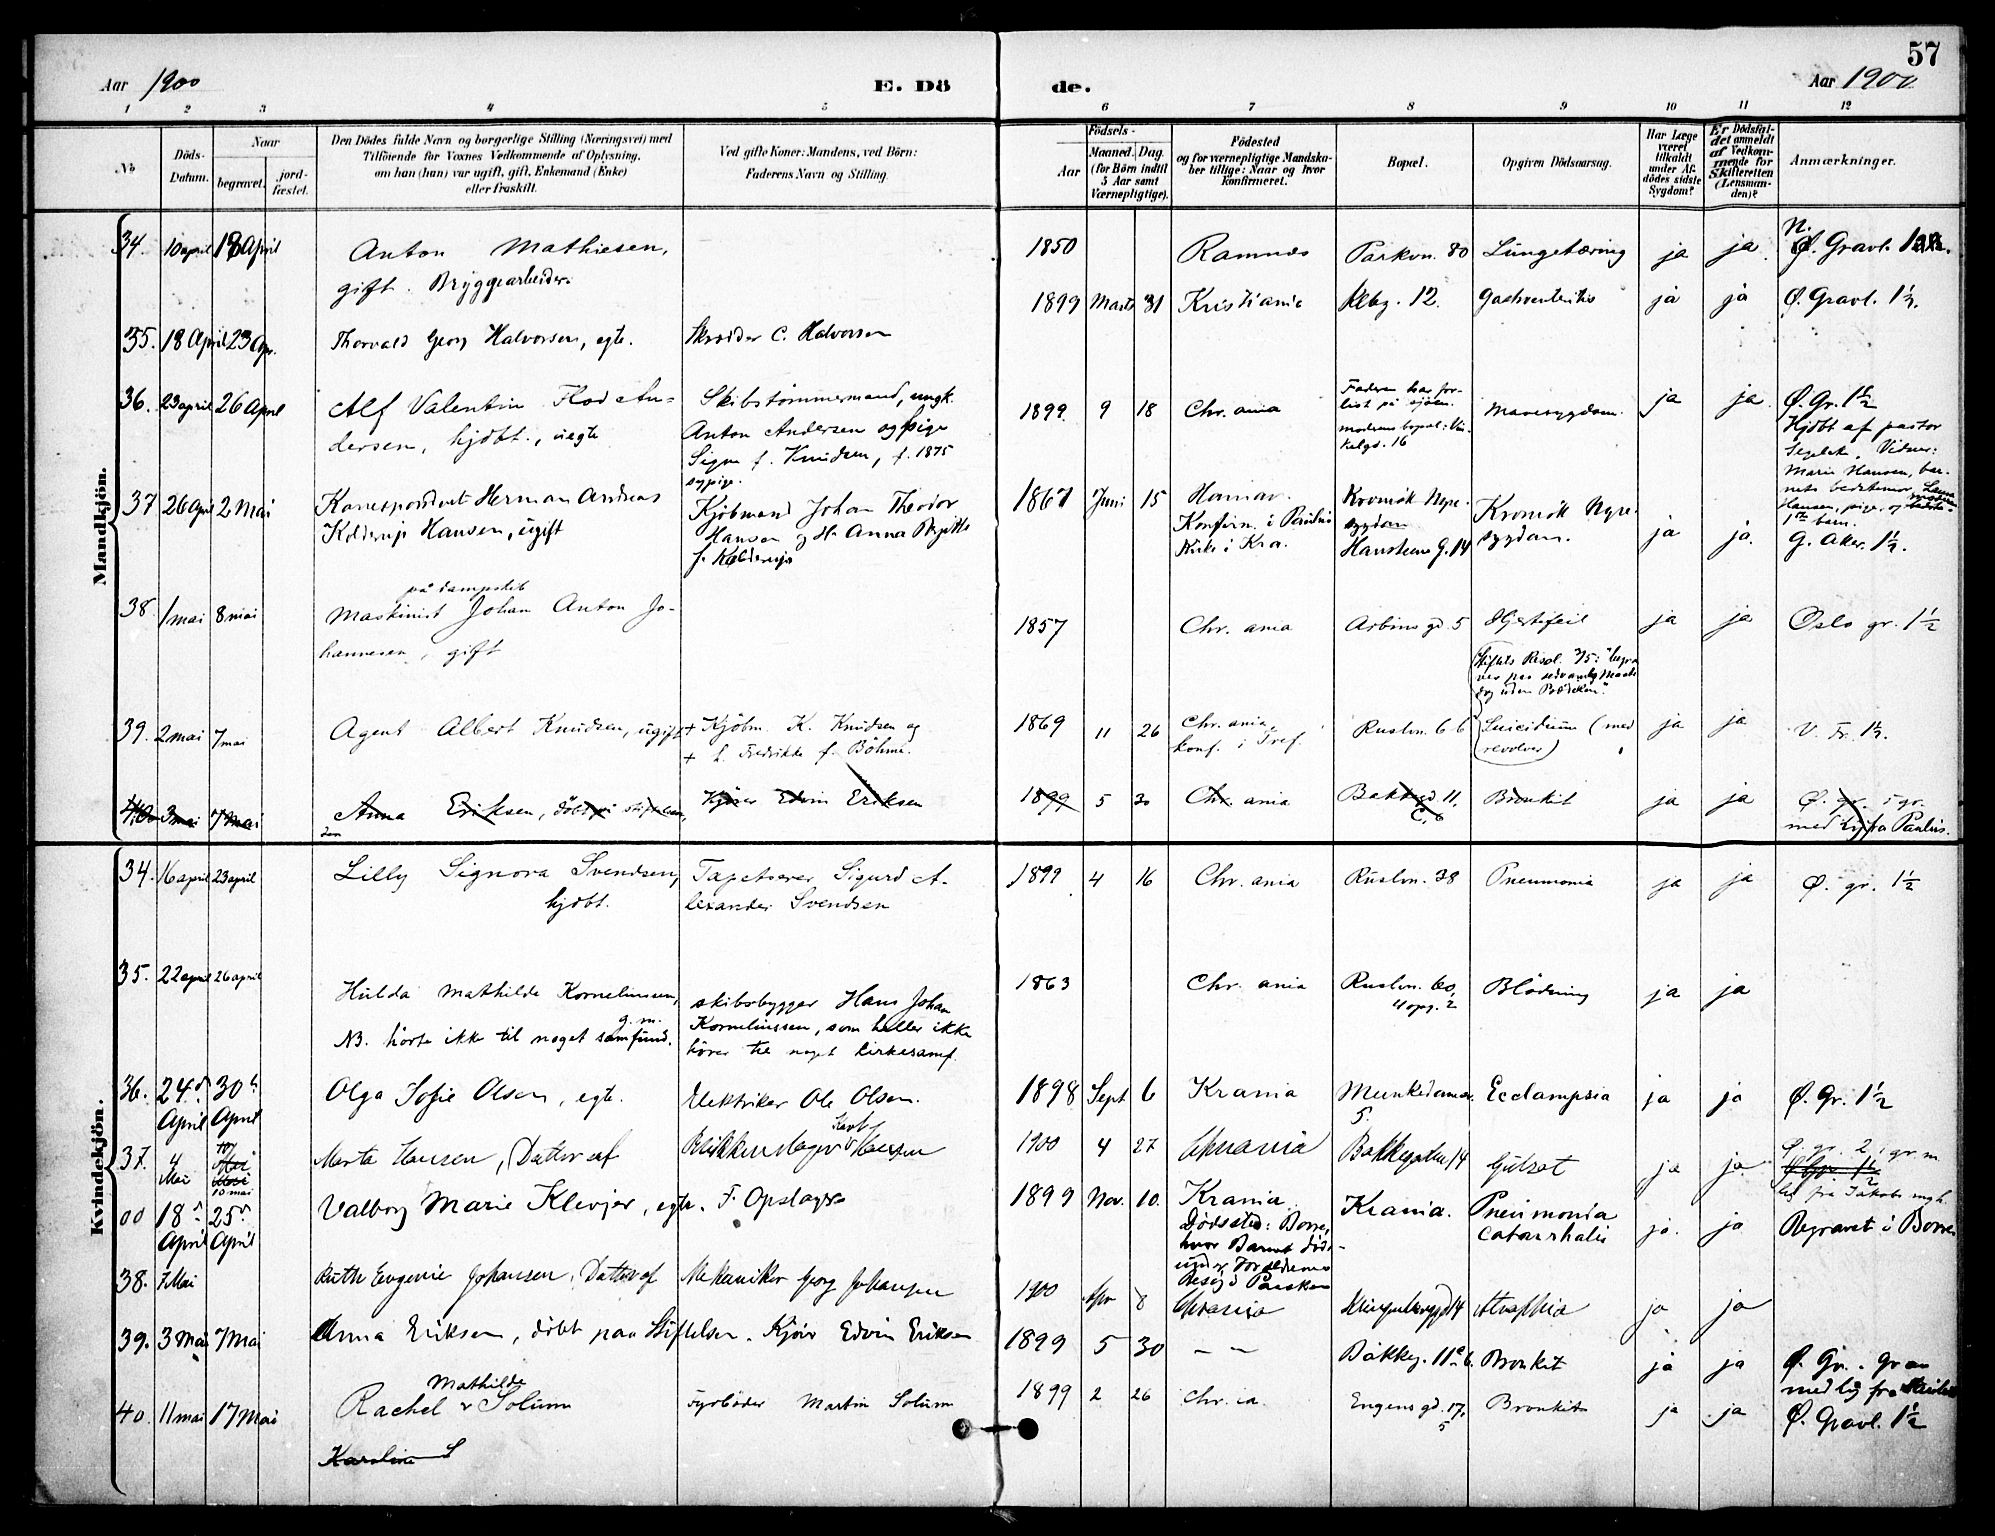 57
Aar 1900
E. Döde.
Aar 1900
1 2 3 4 5 6 7 8 9 10 11 12
No
Döds-Datum.
Naar
begravet.
jord-fæstet.
Den Dödes fulde Navn og borgerlige Stilling (Næringsvei) med
Tilföiende for Voxnes Vedkommende af Oplysning,
om han (hun) var ugift, gift, Enkemand (Enke)
eller fraskilt.
Ved gifte Koner: Mandens, ved Börn:
Faderens Navn og Stilling.
Födsels-
Aar
Maaned.
Dag
(for Börn indtil
5 Aar samt
Værnepligtige).
Födested
og for værnepligtige Mandska-
ber tillige: Naar og hvor
konfirmeret.
Bopæl.
Opgiven Dödsaarsag.
Har Læge
været
tilkaldt
under Af-
dödes sidste
Sygdom?
Er Dödsfal-
det anmeldt
af Vedkom-
mende for
Skifteretten
(Lensman-
den)?
Anmærkninger.
Mandkjön.
34. 10 april 18 April Anton Mathiesen, 1850 Ramnes Parkvn. 80 Lungetæring ja ja N. Gravl.
gift. Bryggearbeider.
35. 18 April 23 Apr. Thorvald Georg Halvorsen, egte. Skrædder C. Halvorsen 1899 Marts 31 Kristiania 12. ja ja Ø. Gravl. 1½.
36. 23 april 26 April Alf Valentin Flod An- Skibstømmermand, ungk. 1899 9 18 Chr.ania Faderen har for- Mavesygdom. ja ja Ø. Gr. 1½
dersen, hjdbt., uegte Anton Andersen og pige list på sjøen. Hjdbt af pastor
Signe f. Knudsen, f. 1875 moderens bopæl: Vin- Vidner:
sypige. kelgd. 16 Marie Hansen, bar-
nets bedstemor,
Hansen, pige, og
1ste barn.
37 26 April 2 Mai Korrespondent Herman Andreas Kjøbmand Johan Theodor 1867 Juni 15 Hamar. Kronisk Nyre- Kronisk Nyre-
Kolderup Hansen, ugift Hansen og H. Anna Birgitte Konfirm. i Paulus sygdom sygdom. ja ja.
f. Kolderup Kirke i Kra. Hansteens G. 14 G. Aker. 1½.
38. 1 mai 8 mai på dampskib
Maskinist Johan Anton Jo- 1857 Chr.ania Arbins gd. 5 Hjertefeil ja ja Oslo gr. 1½
hannesen, gift
Stiftets Resol. 3/5: "begra-
ves paa sedvanlig Maade
dog uden
39. 2 mai 7 mai Agent Albert Knudsen, ugift + Kjøbm. K. Knudsen og 1869 11 26 Chr.ania, Ruslvn. 66 Suicidium (med ja ja V. Fr. 1½.
+ h. Fredrikke f. Böhme. konf. i Tref. revolver)
40 3 mai 7 Mai Anna Eriksen, döbt i stiftelsen, Edvin Eriksen 1899 5 30 Chr.ania Bakkegd. 11, Bronkit ja ja Ø. gr. i gr.
C. 6 med lig fra Paulus.
Kvindekjön.
34. 16 april 23 april Lilly Signora Svendsen, Tapetserer Sigurd A- 1899 4 16 Chr.ania Ruslvn. 38 Pneumonia ja ja Ø. gr. 1½
hjdbt. lexander Svendsen
35. 22 april 26 april Hulda Mathilde Korneliussen, skibsbygger Hans Johan 1863 Chr.ania Ruslvn. 60, Blödning ja ja
g. m. 4 opg. 2
NB. hörte ikke til noget samfund. Korneliussen, som heller ikke
hörer til noget kirkesamf.
36. 24d April 30te April Olga Sofie Olsen, egte. Elektriker Ole Olsen. 1898 Sept 6 Krania Munkedamsv. Ecclampsia ja ja Ø. Gr. 1½
5.
37. 4 Mai 10 mai Marta Hansen, Datter af Blikkenslager Hansen 1900 4 27 Chrania Bakkegaten 14 Gulsot ja ja Ø. gr. 2 i gr. m
lig fra Jakobs mgh.
00 18d April 25d April Valborg Marie Klevjer, egte. F. Opslager 1899 Nov. 10. Krania. Krania. Pneumonia ja. ja Begravet i Borre
Dödssted: Borre, catarrhalis
hvor Barnet död-
under Forældrenes
Besög i Paasken
38. 7 Mai Ruth Eugenie Johansen, Datter af Mekaniker Georg Johansen 1900 Apr 8 Chrania Klingenberggd 4 Atrophia ja ja
39. 3 Mai 7 Mai Anna Eriksen, döbt paa Stiftelsen. Edvin Eriksen 1899 5 30 — — Bakkeg. 11 Bronkit ja ja Ø. Gr.
med lig fra
40. 11 mai 17 Mai Rachel Mathilde Solum Fyrböder Martin Solum 1899 2 26 Chr.ia. Engens gd. 17, Bronkit ja ja Ø. Gravl. 1½
5
Karoline S